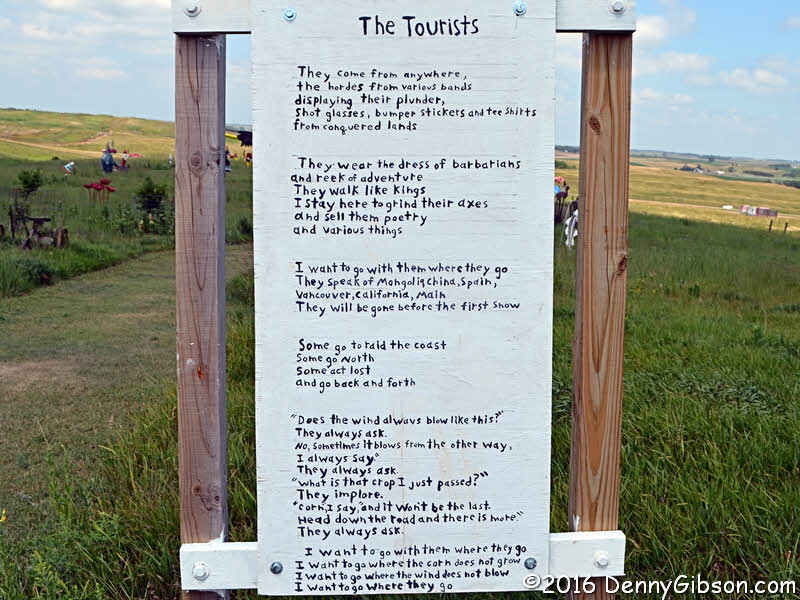 The Tourists
They come from anywhere,
the hordes from various bands
displaying their plunder,
Shot glasses, bumper stickers and tee shirts
from conquered lands
They wear the dress of barbarians
and reek of adventure
They walk like kings
I stay here to grind their axes
and sell them poetry
and various things
I want to go with them where they go
They speak of Mongolia, China, Spain,
Vancouver, California, Main
They will be gone before the first snow
Some go to raid the coast
Some go North
Some act lost
and go back and forth
"Does the wind always blow like this?"
They always ask.
No, sometimes it blows from the other way,
I always say."
They always ask.
"What is that crop I just passed?"
They implore.
"Corn, I say, "and it won't be the last.
Head down the road and there is more."
They always ask.
I want to go with them where they go
I want to go where the corn does not grow
I want to go where the wind does not blow
I want to go where they go
©2016 DennyGibson.com